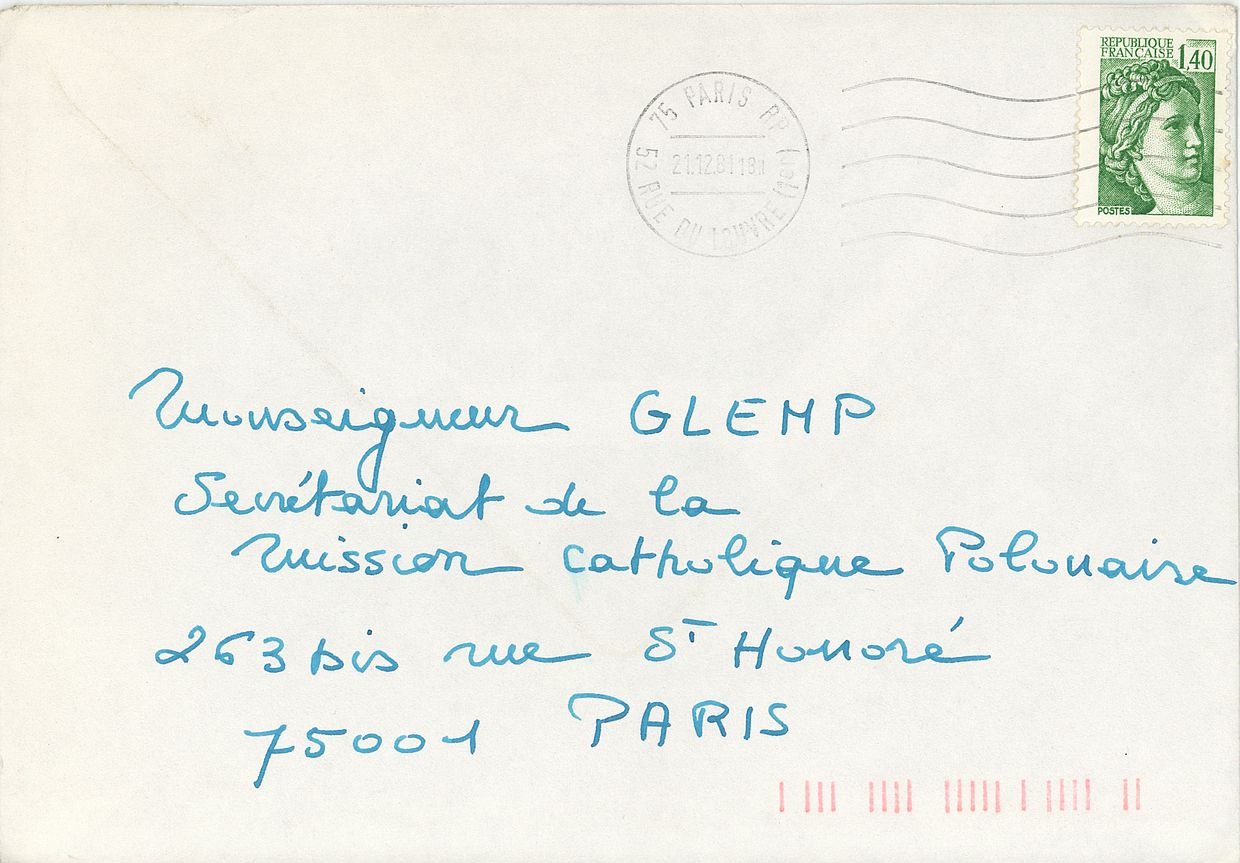 REPUBLIQUE
FRANÇAISE 1,40
POSTES
75 PARIS RP
21.12.81 18H
52 RUE DU LOUVRE (1er)
Monseigneur GLEMP
Secrétariat de la
Mission Catholique Polonaise
263 bis rue St Honoré
75001 PARIS